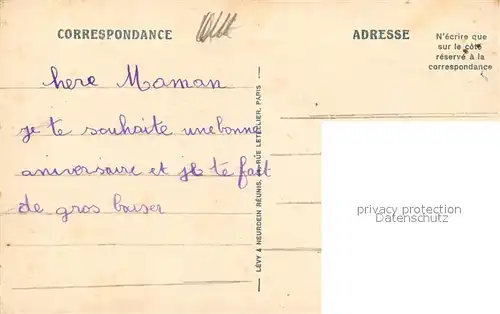 CORRESPONDANCE
ADRESSE
N'écrire que
sur le côté
réservé à la
correspondance
here Maman
je te souhaite une bonne
aniversaire et je te fait
de gros baiser
LÉVY & NEURDEIN RÉUNIS, 44, RUE LETELLIER, PARIS
privacy protection
Datenschutz